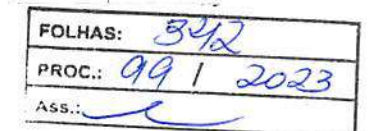 FOLHAS: 342
PROC.: 99 / 2023
Ass.: